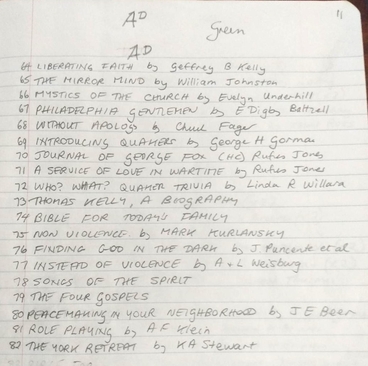 AD
11
Green
AD
64 LIBERATING FAITH by Geffrey B. Kelly
65 THE MIRROR MIND by William Johnston
66 MYSTICS OF THE CHURCH by Evelyn Underhill
67 PHILADELPHIA GENTLEMEN by E Digby Baltzell
68 WITHOUT APOLOGY by Chuck Fager
69 INTRODUCING QUAKERS by George H Gorman
70 JOURNAL OF GEORGE FOX (HC) Rufus Jones
71 A SERVICE OF LOVE IN WARTIME by Rufus Jones
72 WHO? WHAT? QUAKER TRIVIA by Linda R Willard
73 THOMAS KELLY, A BIOGRAPHY
74 BIBLE FOR TODAY'S FAMILY
75 NON VIOLENCE by MARK KURLANSKY
76 FINDING GOD IN THE DARK by J Puncente et al
77 INSTEAD OF VIOLENCE by A & L Weisburg
78 SONGS OF THE SPIRIT
79 THE FOUR GOSPELS
80 PEACEMAKING IN YOUR NEIGHBORHOOD by J E Beer
81 ROLE PLAYING by A F Klein
82 THE YORK RETREAT by KA Stewart